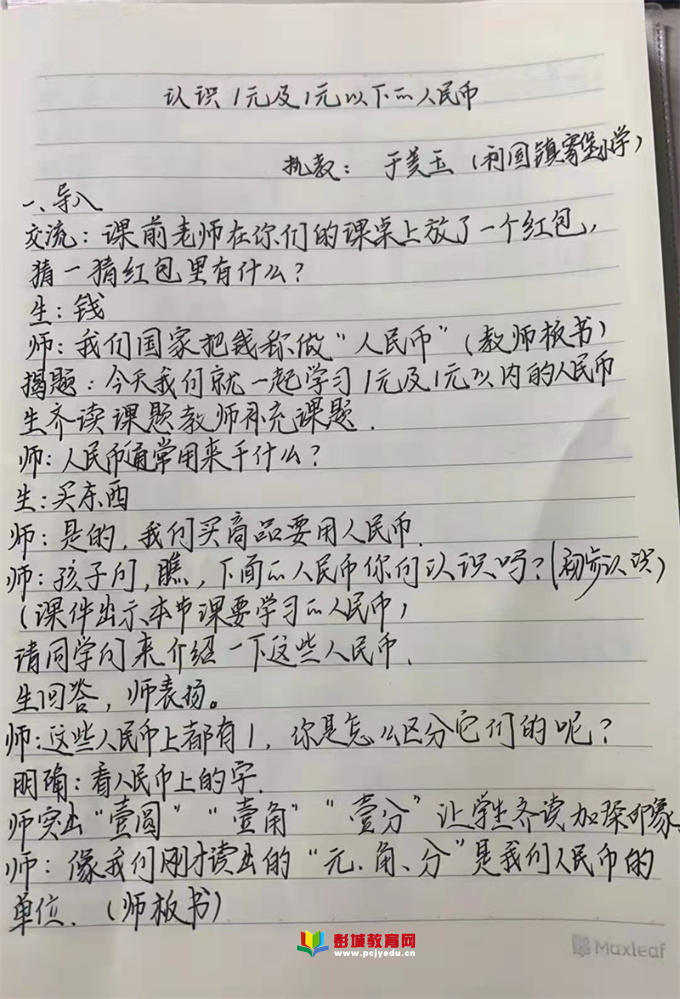 认识1元及1元以下的人民币
执教：于美玉（利国镇寨堡小学）
一、导入
交流：课前老师在你们的课桌上放了一个红包，
猜一猜红包里有什么？
生：钱
师：我们国家把钱称做“人民币”（教师板书）
揭题：今天我们就一起学习1元及1元以内的人民币
生齐读课题教师补充课题．
师：人民币通常用来干什么？
生：买东西
师：是的，我们买商品要用人民币．
师：孩子们，瞧，下面的人民币你们认识吗？（初步认识）
（课件出示本节课要学习的人民币）
请同学们来介绍一下这些人民币．
生回答，师表扬。
师：这些人民币上都有1，你是怎么区分它们的呢？
明确：看人民币上的字．
师突出“壹圆”“壹角”“壹分”让学生齐读加深印象．
师：像我们刚才读出的“元、角、分”是我们人民币的
单位．（师板书）
彭城教育网
www.pcjyedu.cn
Maxleaf